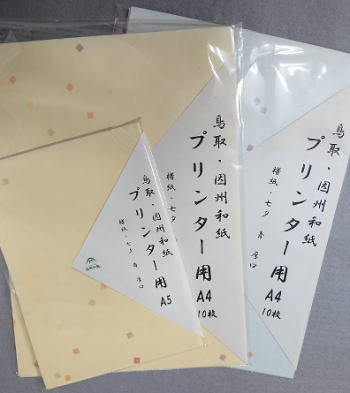 鳥取・因州和紙
プリンター用
楮紙・七夕 青 厚口
A5
鳥取・因州和紙
プリンター用
楮紙・七夕
A4
10枚
鳥取・因州和紙
プリンター用
楮紙・七夕 青 厚口
A4
10枚